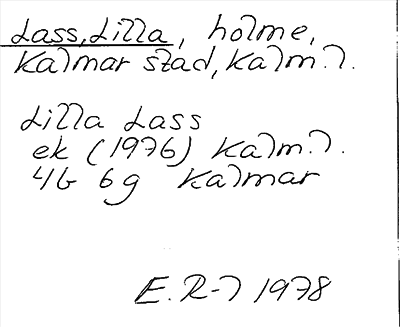 Lass, Lilla, holme,
Kalmar stad, Kalm. l.
Lilla Lass
ek (1976) Kalm. l.
4G 6g Kalmar
E. R-l 1978